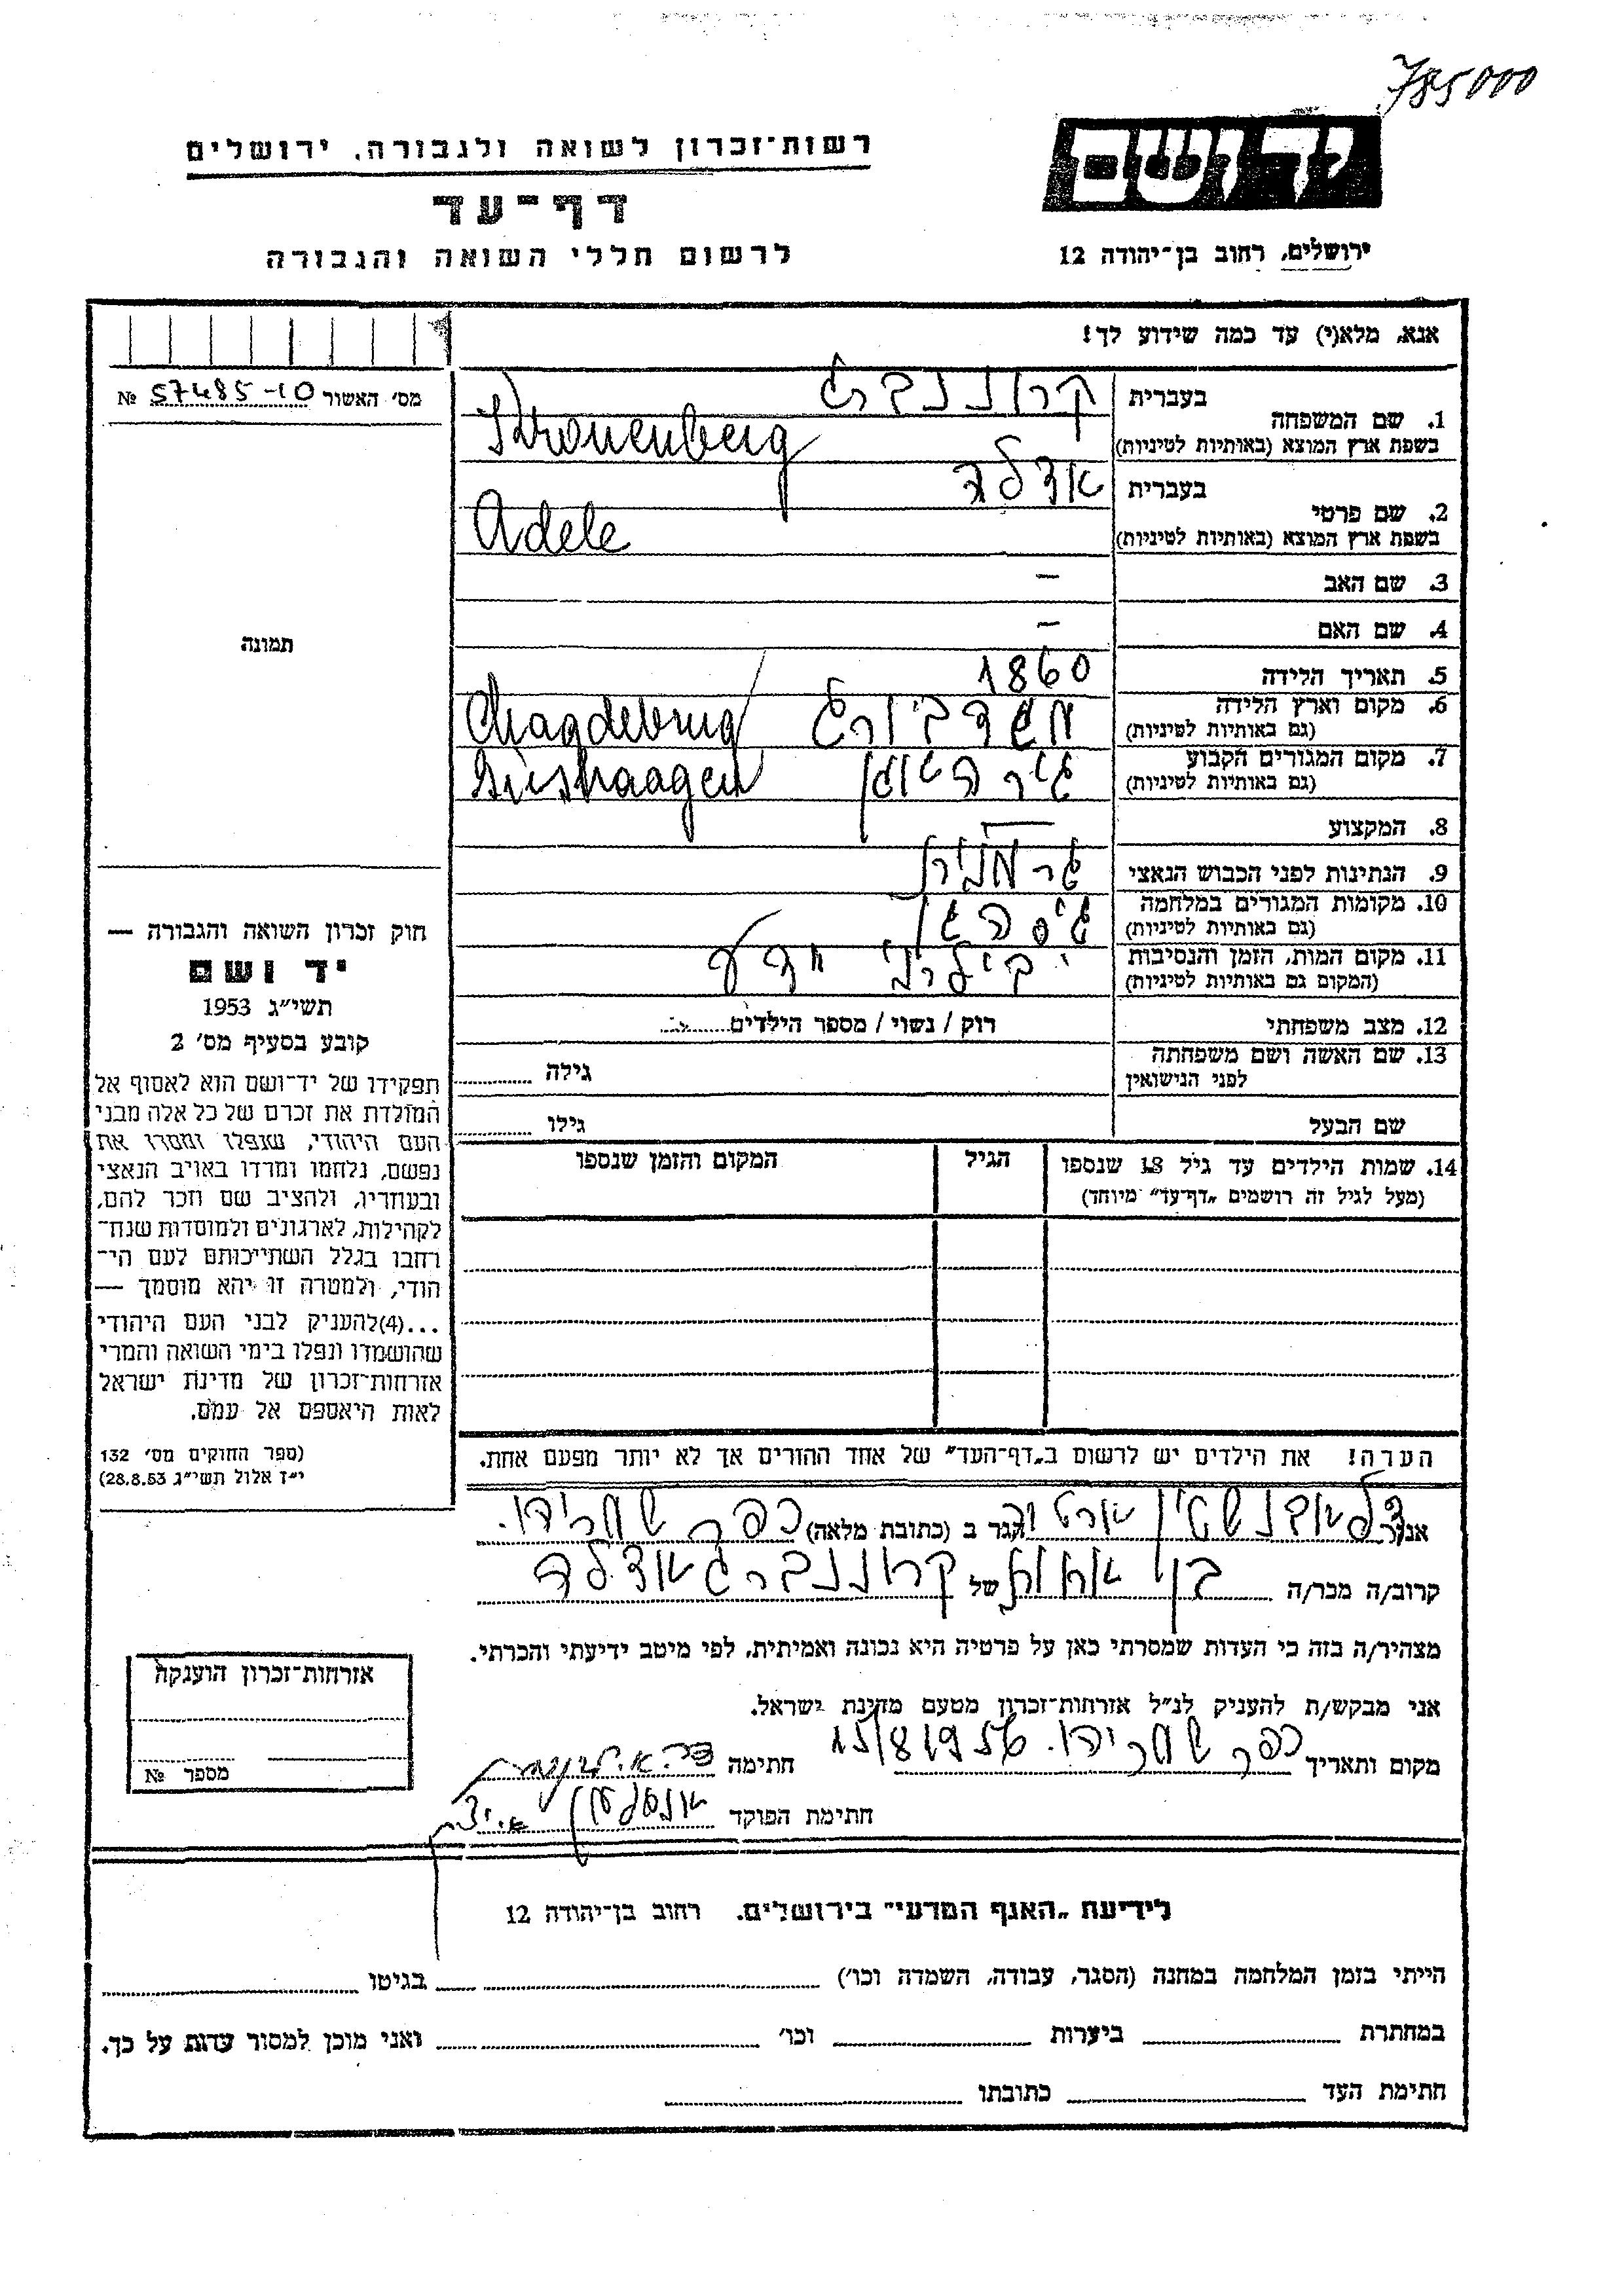 785000
יד ושם
רשות־זכרון לשואה ולגבורה, ירושלים
דף־עד
לרשום חללי השואה והגבורה
ירושלים, רחוב בן־יהודה 12
אנא, מלא(י) עד כמה שידוע לך!
מס׳ האשור № 57485-10
1. שם המשפחה
בעברית קרוננברג
בשפת ארץ המוצא (באותיות לטיניות) Kronenberg
2. שם פרטי
בעברית אדלה
בשפת ארץ המוצא (באותיות לטיניות) Adele
3. שם האב —
4. שם האם —
תמונה
5. תאריך הלידה 1860
6. מקום וארץ הלידה
(גם באותיות לטיניות) מגדבורג Magdeburg
7. מקום המגורים הקבוע
(גם באותיות לטיניות)
8. המקצוע —
9. הנתינות לפני הכבוש הנאצי גרמנית
10. מקומות המגורים במלחמה
(גם באותיות לטיניות)
11. מקום המות, הזמן והנסיבות
(המקום גם באותיות לטיניות) ידוע
12. מצב משפחתי רוק / נשוי / מספר הילדים
13. שם האשה ושם משפחתה
לפני הנישואין גילה
שם הבעל גילו
14. שמות הילדים עד גיל 18 שנספו
(מעל לגיל זה רושמים „דף־עד״ מיוחד)
הגיל
המקום והזמן שנספו
חוק זכרון השואה והגבורה —
יד ושם
תשי״ג 1953
קובע בסעיף מס׳ 2
תפקידו של יד־ושם הוא לאסוף אל
המולדת את זכרם של כל אלה מבני
העם היהודי, שנפלו ומסרו את
נפשם, נלחמו ומרדו באויב הנאצי
ובעוזריו, ולהציב שם וזכר להם,
לקהילות, לארגונים ולמוסדות שנח־
רחבו בגלל השתייכותם לעם הי־
הודי, ולמטרה זו יהא מוסמך —
...(4)להעניק לבני העם היהודי
שהושמדו ונפלו בימי השואה והמרי
אזרחות־זכרון של מדינת ישראל
לאות היאספם אל עמם.
(ספר החוקים מס׳ 132
י״ז אלול תשי״ג 28.8.53)
הערה! את הילדים יש לרשום ב„דף־העד״ של אחד ההורים אך לא יותר מפעם אחת.
אני הגר ב (כתובת מלאה) כפר שמריהו.
קרוב/ה מכר/ה בן אחות של קרוננברג אדלה
מצהיר/ה בזה כי העדות שמסרתי כאן על פרטיה היא נכונה ואמיתית, לפי מיטב ידיעתי והכרתי.
אני מבקש/ת להעניק לנ״ל אזרחות־זכרון מטעם מדינת ישראל.
מקום ותאריך כפר שמריהו. 15/8/1956 חתימה
חתימת הפוקד
אזרחות־זכרון הוענקה
מספר №
לידיעת „האגף המדעי״ בירושלים, רחוב בן־יהודה 12
הייתי בזמן המלחמה במחנה (הסגר, עבודה, השמדה וכו׳) בגיטו
במחתרת ביערות וכו׳ ואני מוכן למסור עדות על כך.
חתימת העד כתובתו